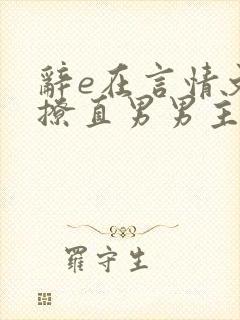 辞e在言情文
撩直男男主
羅守生